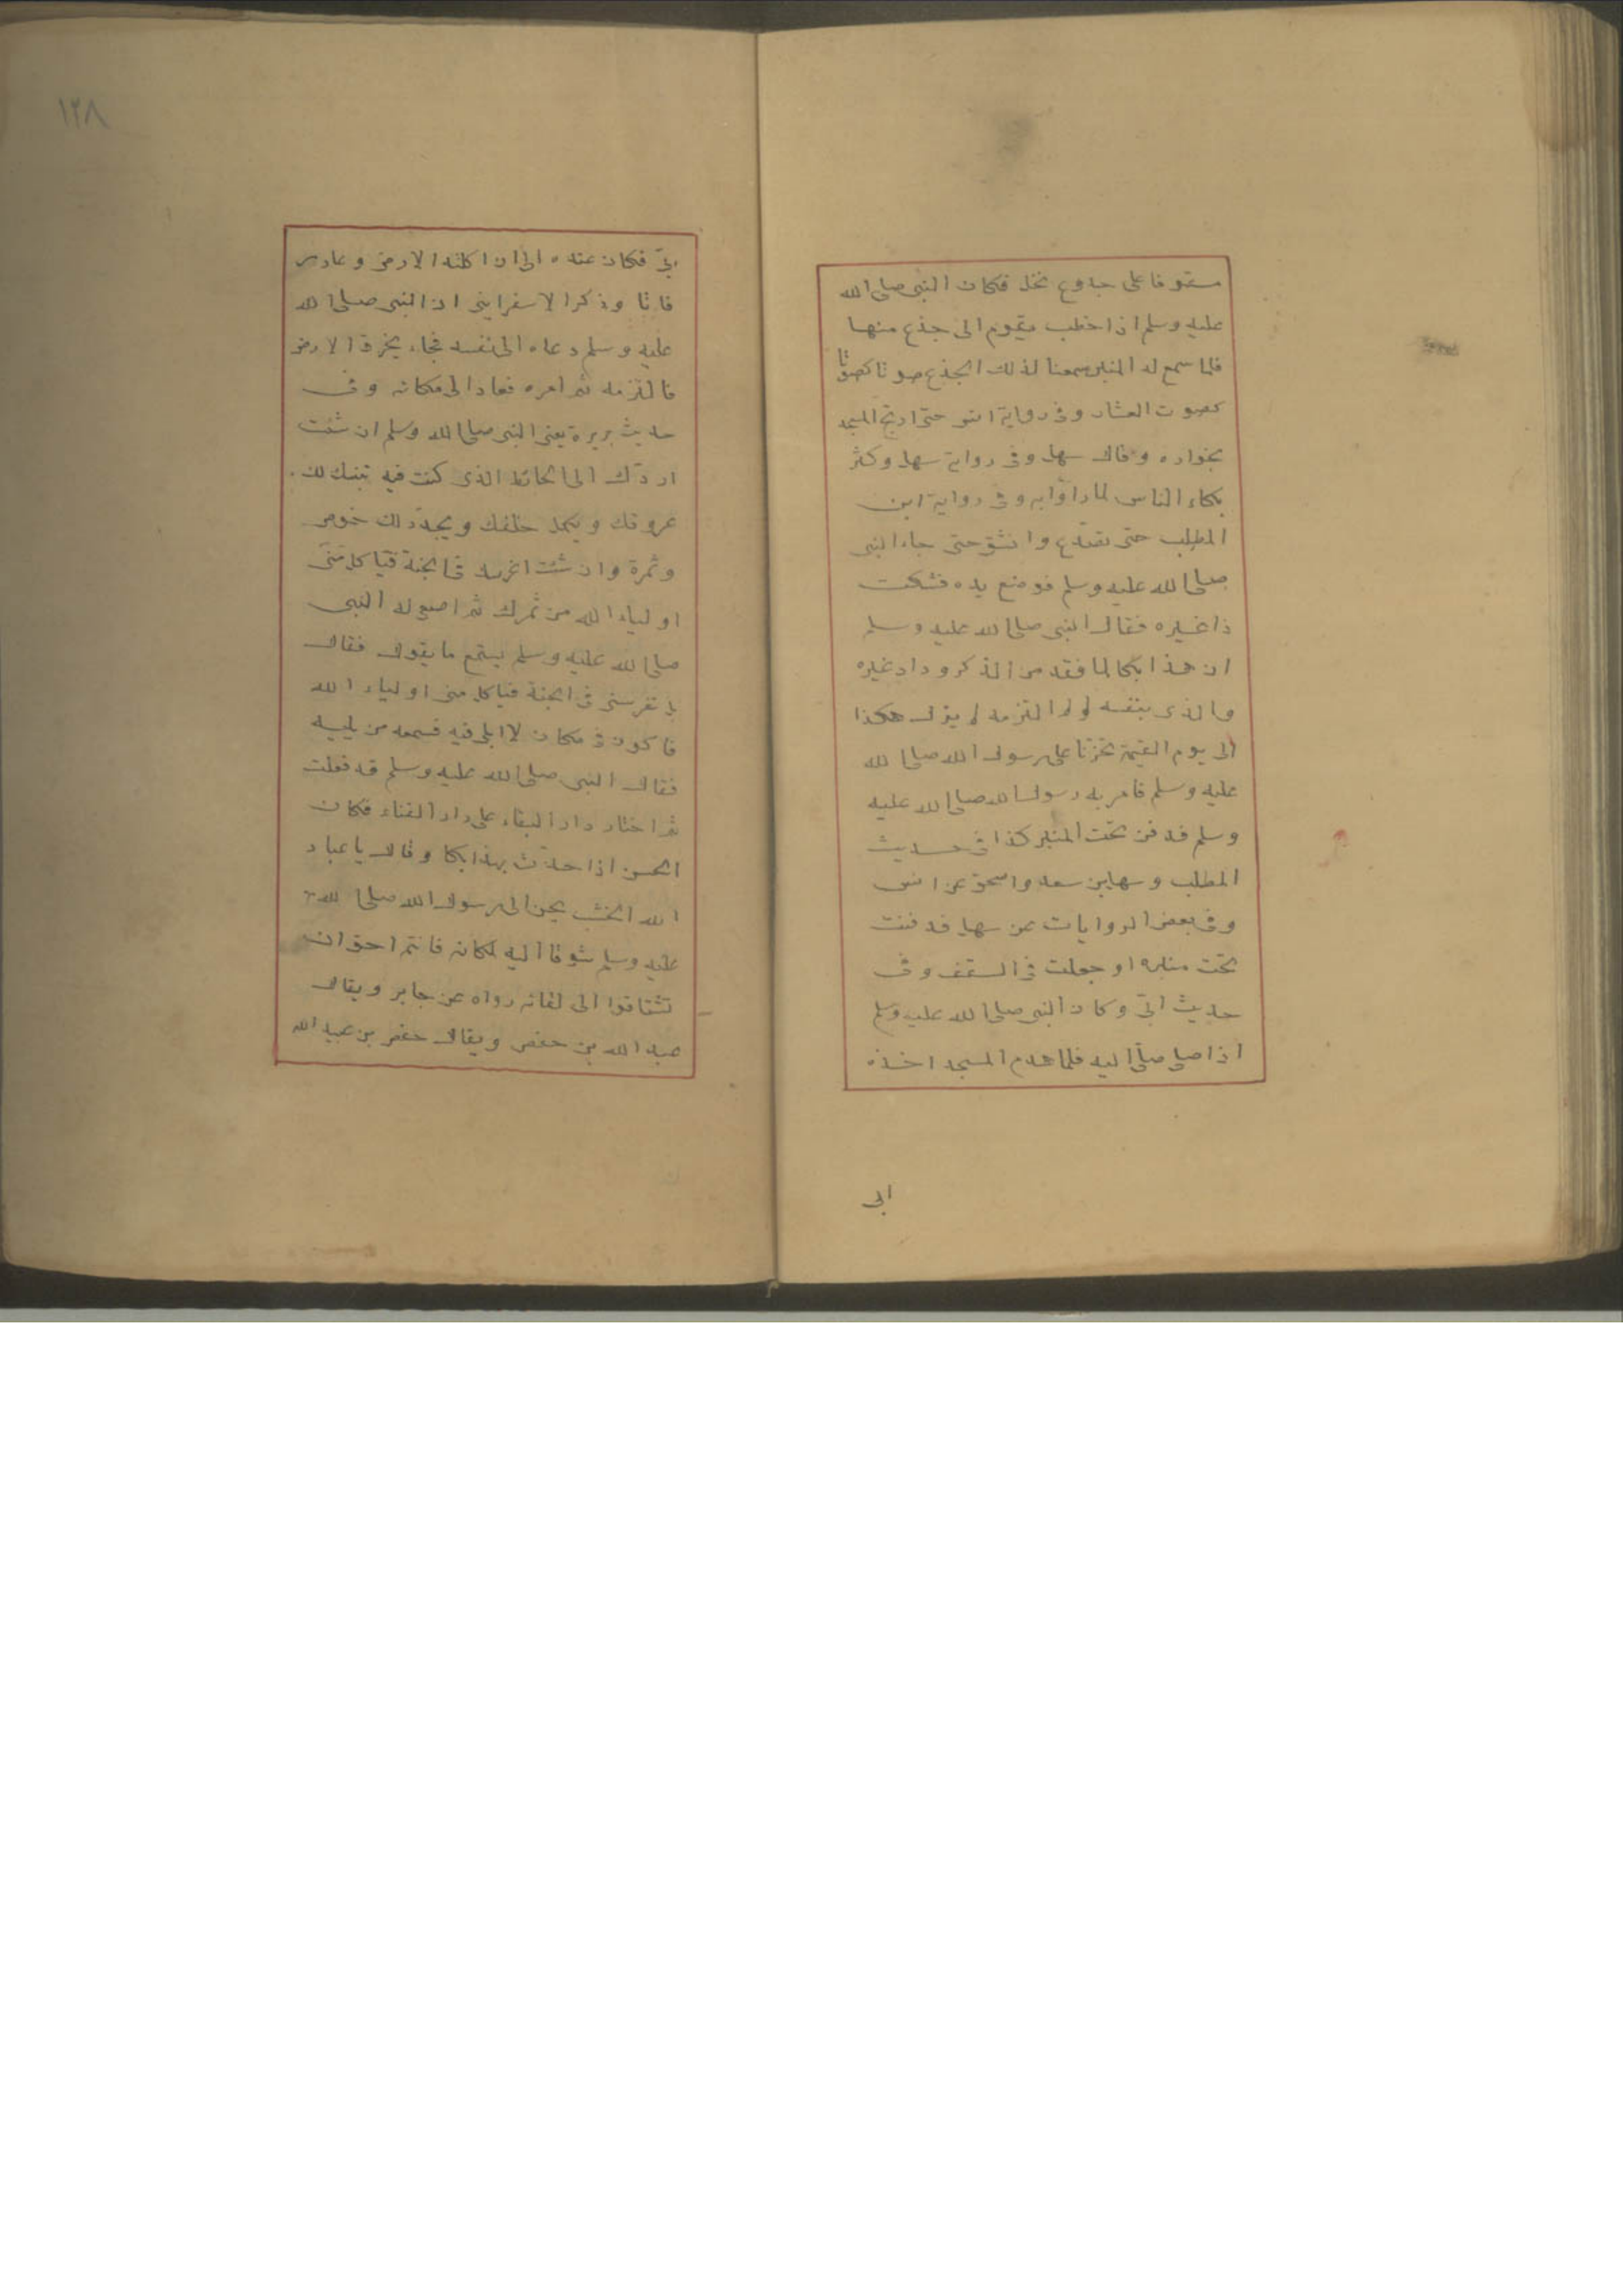 مسقوفا على جذوع نخل فكان النبى صلى الله
عليه وسلم اذا خطب يقوم الى جذع منها
فلما سمع له المنبر سمعنا لذلك الجذع صوتا كصوتا
كصوت العشار وفى رواية انس حتى ارتج المسجد
بخواره وقال سهل وفى رواية سهل وكثر
بكاء الناس لما راوا به وفى رواية ابن
المطلب حتى تصدع وانشق حتى جاء النبى
صلى الله عليه وسلم فوضع يده فسكت
ذا غيره فقال النبى صلى الله عليه وسلم
ان هذا بكا لما فقد من الذكر وداد غيره
والذى بنفسه لو لم التزمه لم يزل هكذا
الى يوم القيمة تحزنا على رسول الله صلى الله
عليه وسلم فامر به رسول الله صلى الله عليه
وسلم فدفن تحت المنبر كذا فى حديث
المطلب وسهل بن سعد واسحق عن انس
وفى بعض الروايات عن سهل فدفنت
تحت منبره او جعلت فى السقف وفى
حديث ابىّ وكان النبى صلى الله عليه وسلم
اذا صلى صلى اليه فلما هدم المسجد اخذه
ابى
١٢٨
ابىّ فكان عنده الى ان اكلته الارض وعاد
فاتا وذكر الاسفراينى ان النبى صلى الله
عليه وسلم دعاه الى نفسه فجاء يخرق الارض
فالتزمه ثم امره فعاد الى مكانه وفى
حديث بريرة يعنى النبى صلى الله وسلم ان شئت
اردّك الى الحائط الذى كنت فيه تنبت لك
عروقك ويكمل خلقك ويجدّد لك خوص
وثمرة وان شئت اغرسك فى الجنة فياكل منى
اولياء الله من ثمرك ثم اصغى له النبى
صلى الله عليه وسلم يستمع ما يقول فقال
بل تغرسنى فى الجنة فياكل منى اولياء الله
فاكون فى مكان لا ابلى فيه فسمعه من يليه
فقال النبى صلى الله عليه وسلم قد فعلت
ثم اختار دار البقاء على دار الفناء فكان
الحسن اذا حدّث بهذا بكا وقال يا عباد
الله الخشب يحن الى رسول الله صلى الله
عليه وسلم شوقا اليه لمكانه فانتم احق ان
تشتاقوا الى لقائه رواه عن جابر ويقال
عبد الله بن حفص ويقال حفص بن عبيد الله